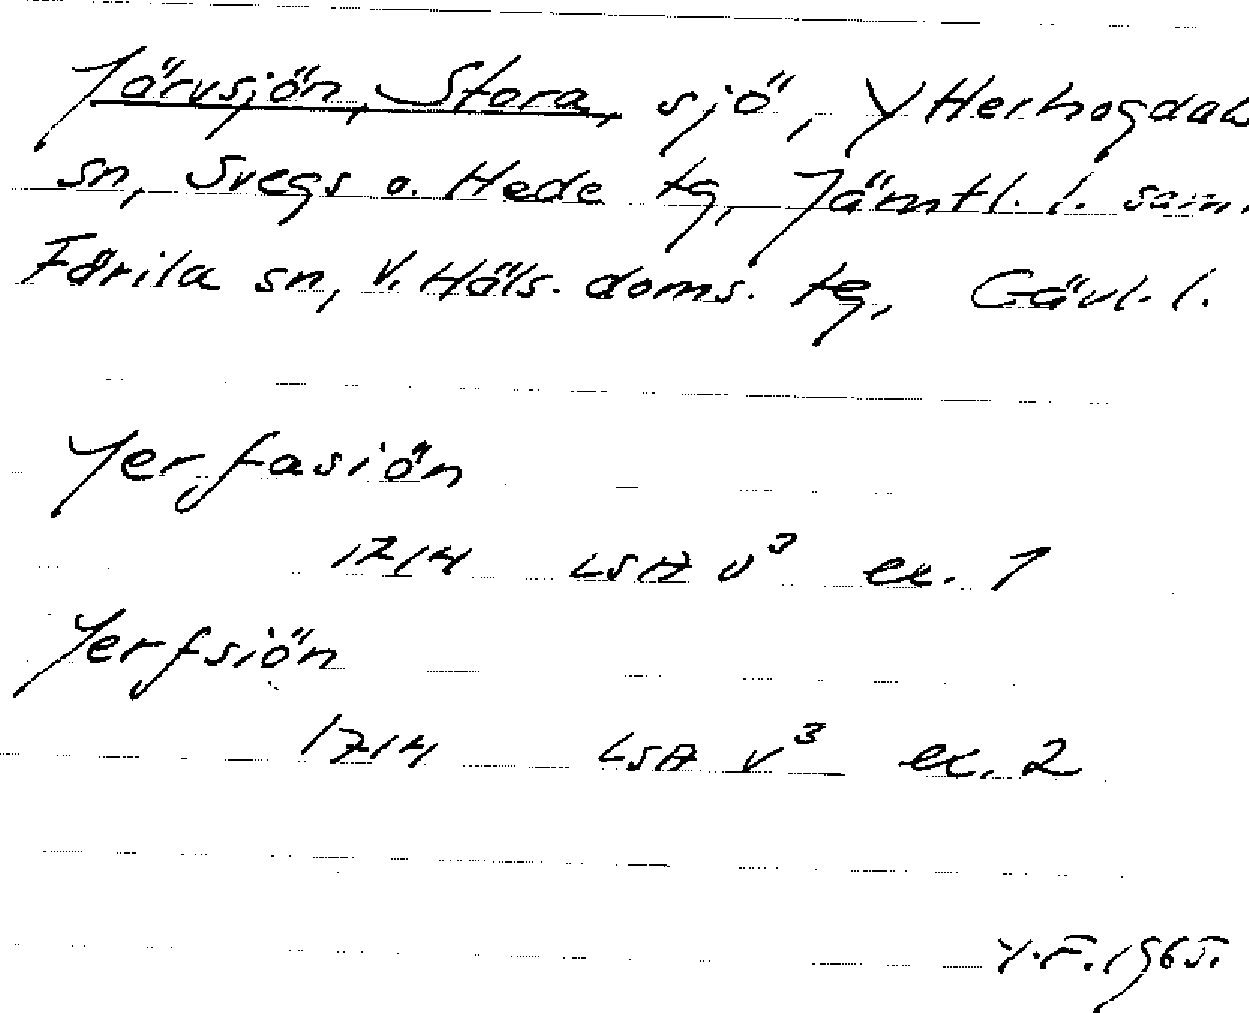 Järvsjön, Stora, sjö, Ytterhogdals
sn, Svegs o. Hede tg, Jämtl. l. samt
Färila sn, V. Häls. doms. tg, Gävl. l.
Jerfasiön
1714 LSA V³ ex. 1
Jerfsiön
1714 LSA V³ ex. 2
Y.F. 1965.